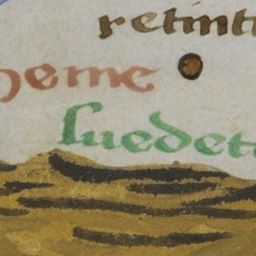 retint
heme
luedet